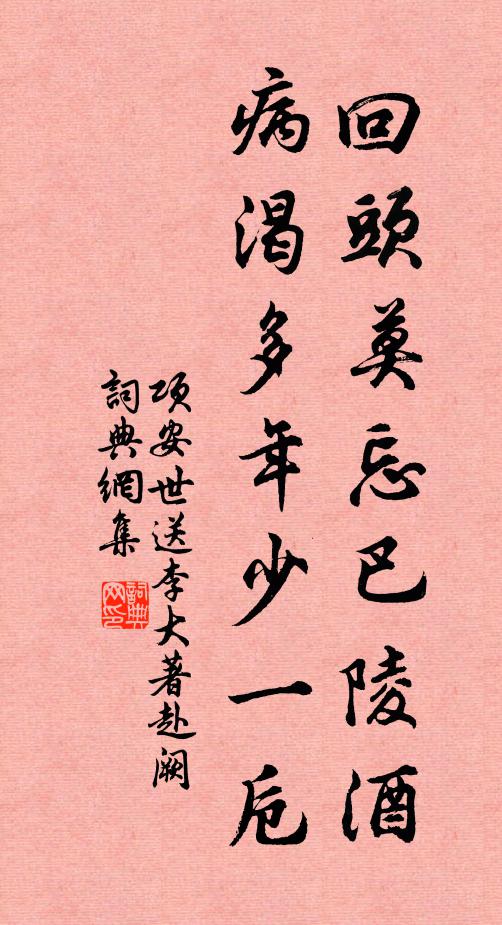 回頭莫忘巴陵酒
病渴多年少一卮
項安世送李大著赴闕
詞典網集
詞典网印